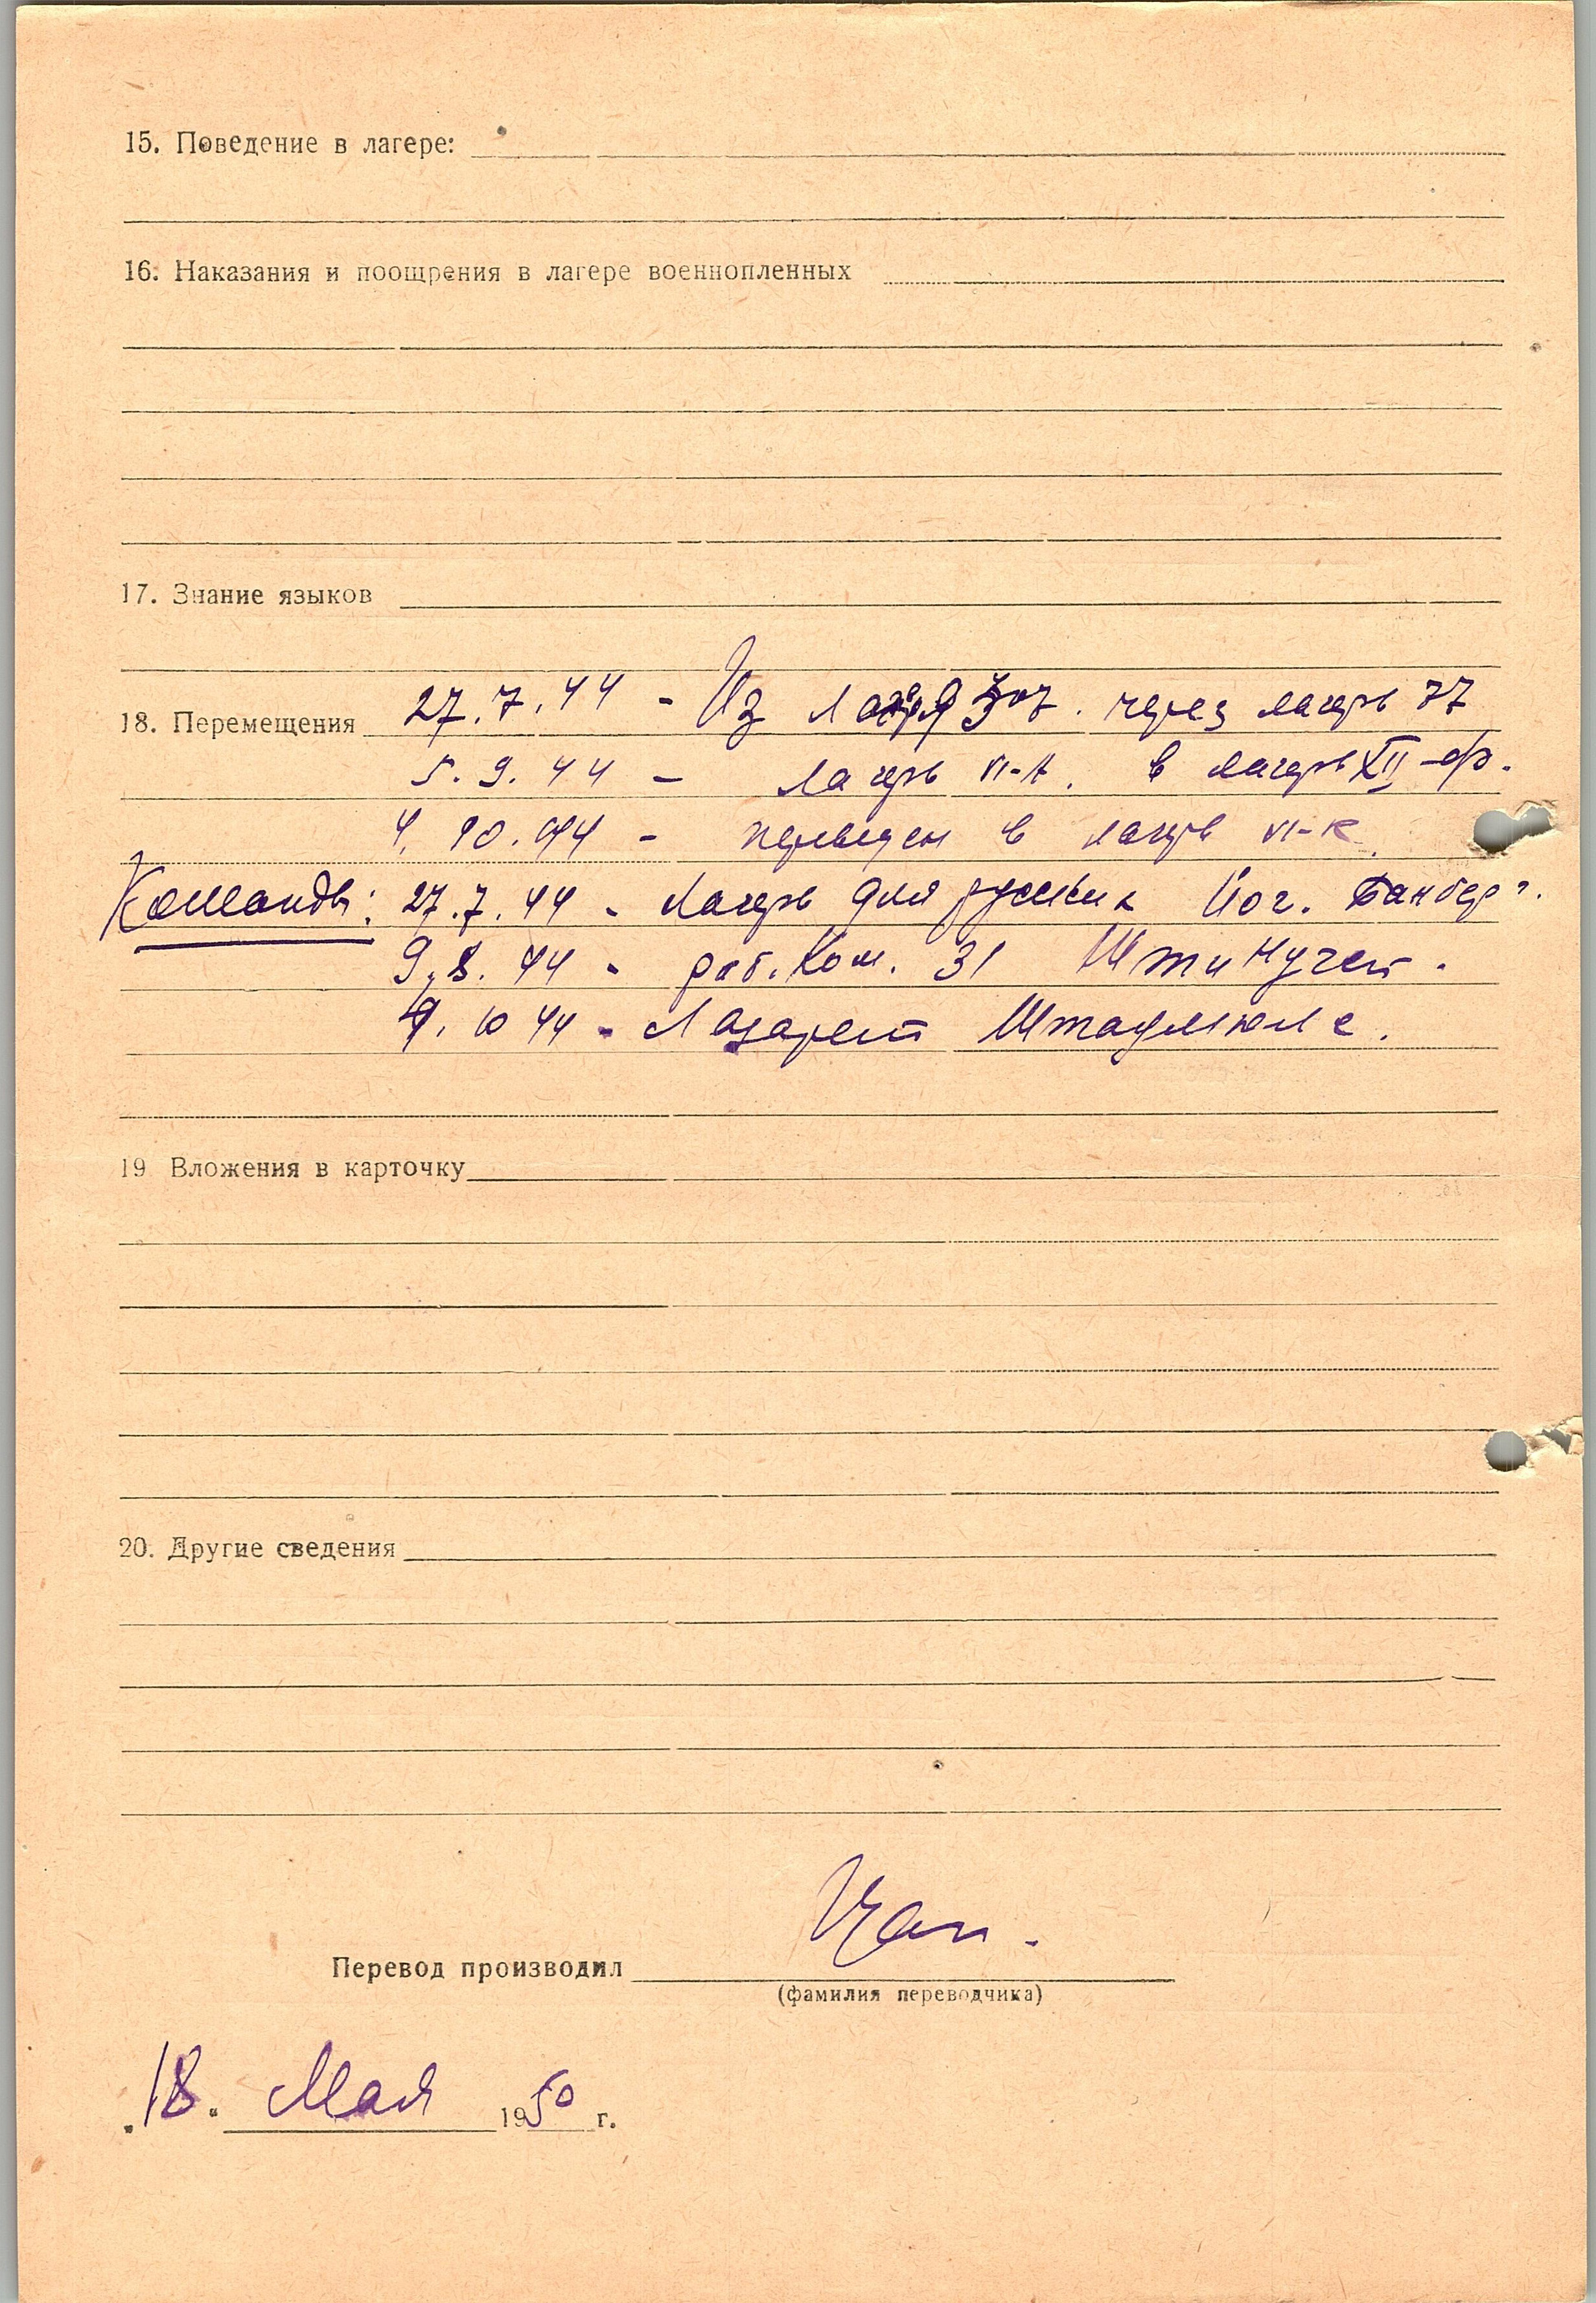 15. Поведение в лагере:
16. Наказания и поощрения в лагере военнопленных
17. Знание языков
18. Перемещения 27.7.44 - Из лагеря 307. через лагерь 77
5.9.44 - Лагерь VI-А. в лагерь XII-ф.
4.10.44 - переведен в лагерь VI-К.
Команды: 27.7.44 - Лагерь для русских Йог. Банберг.
9.8.44 - раб. Ком. 31
4.10 44 - Лазарет Штадмюле.
19 Вложения в карточку
20. Другие сведения
Перевод производил
(фамилия переводчика)
„18." Мая 1950 г.